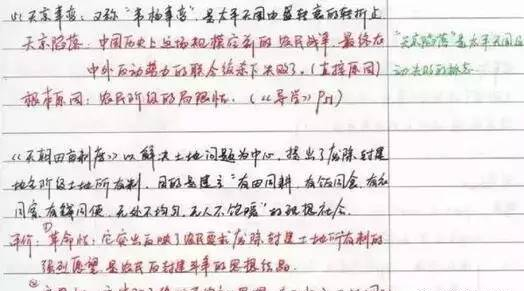 (4) 天京事变:又称"韦杨事变",是太平天国由盛转衰的转折点
天京陷落:中国历史上这场规模空前的农民战争,最终在
"天京陷落"是太平天国运
中外反动势力的联合绞杀下失败了。(直接原因)
动失败的标志
根本原因:农民阶级的局限性。(《导学》P51)
《天朝田亩制度》以解决土地问题为中心,提出了废除封建
地主阶级土地所有制,目的是建立"有田同耕,有饭同食,有衣
同穿,有钱同使,无处不均匀,无人不饱暖"的理想社会。
评价:①革命性:它突出反映了农民要求废除封建土地所有制的
强烈愿望,是农民反封建斗争的思想结晶。
②